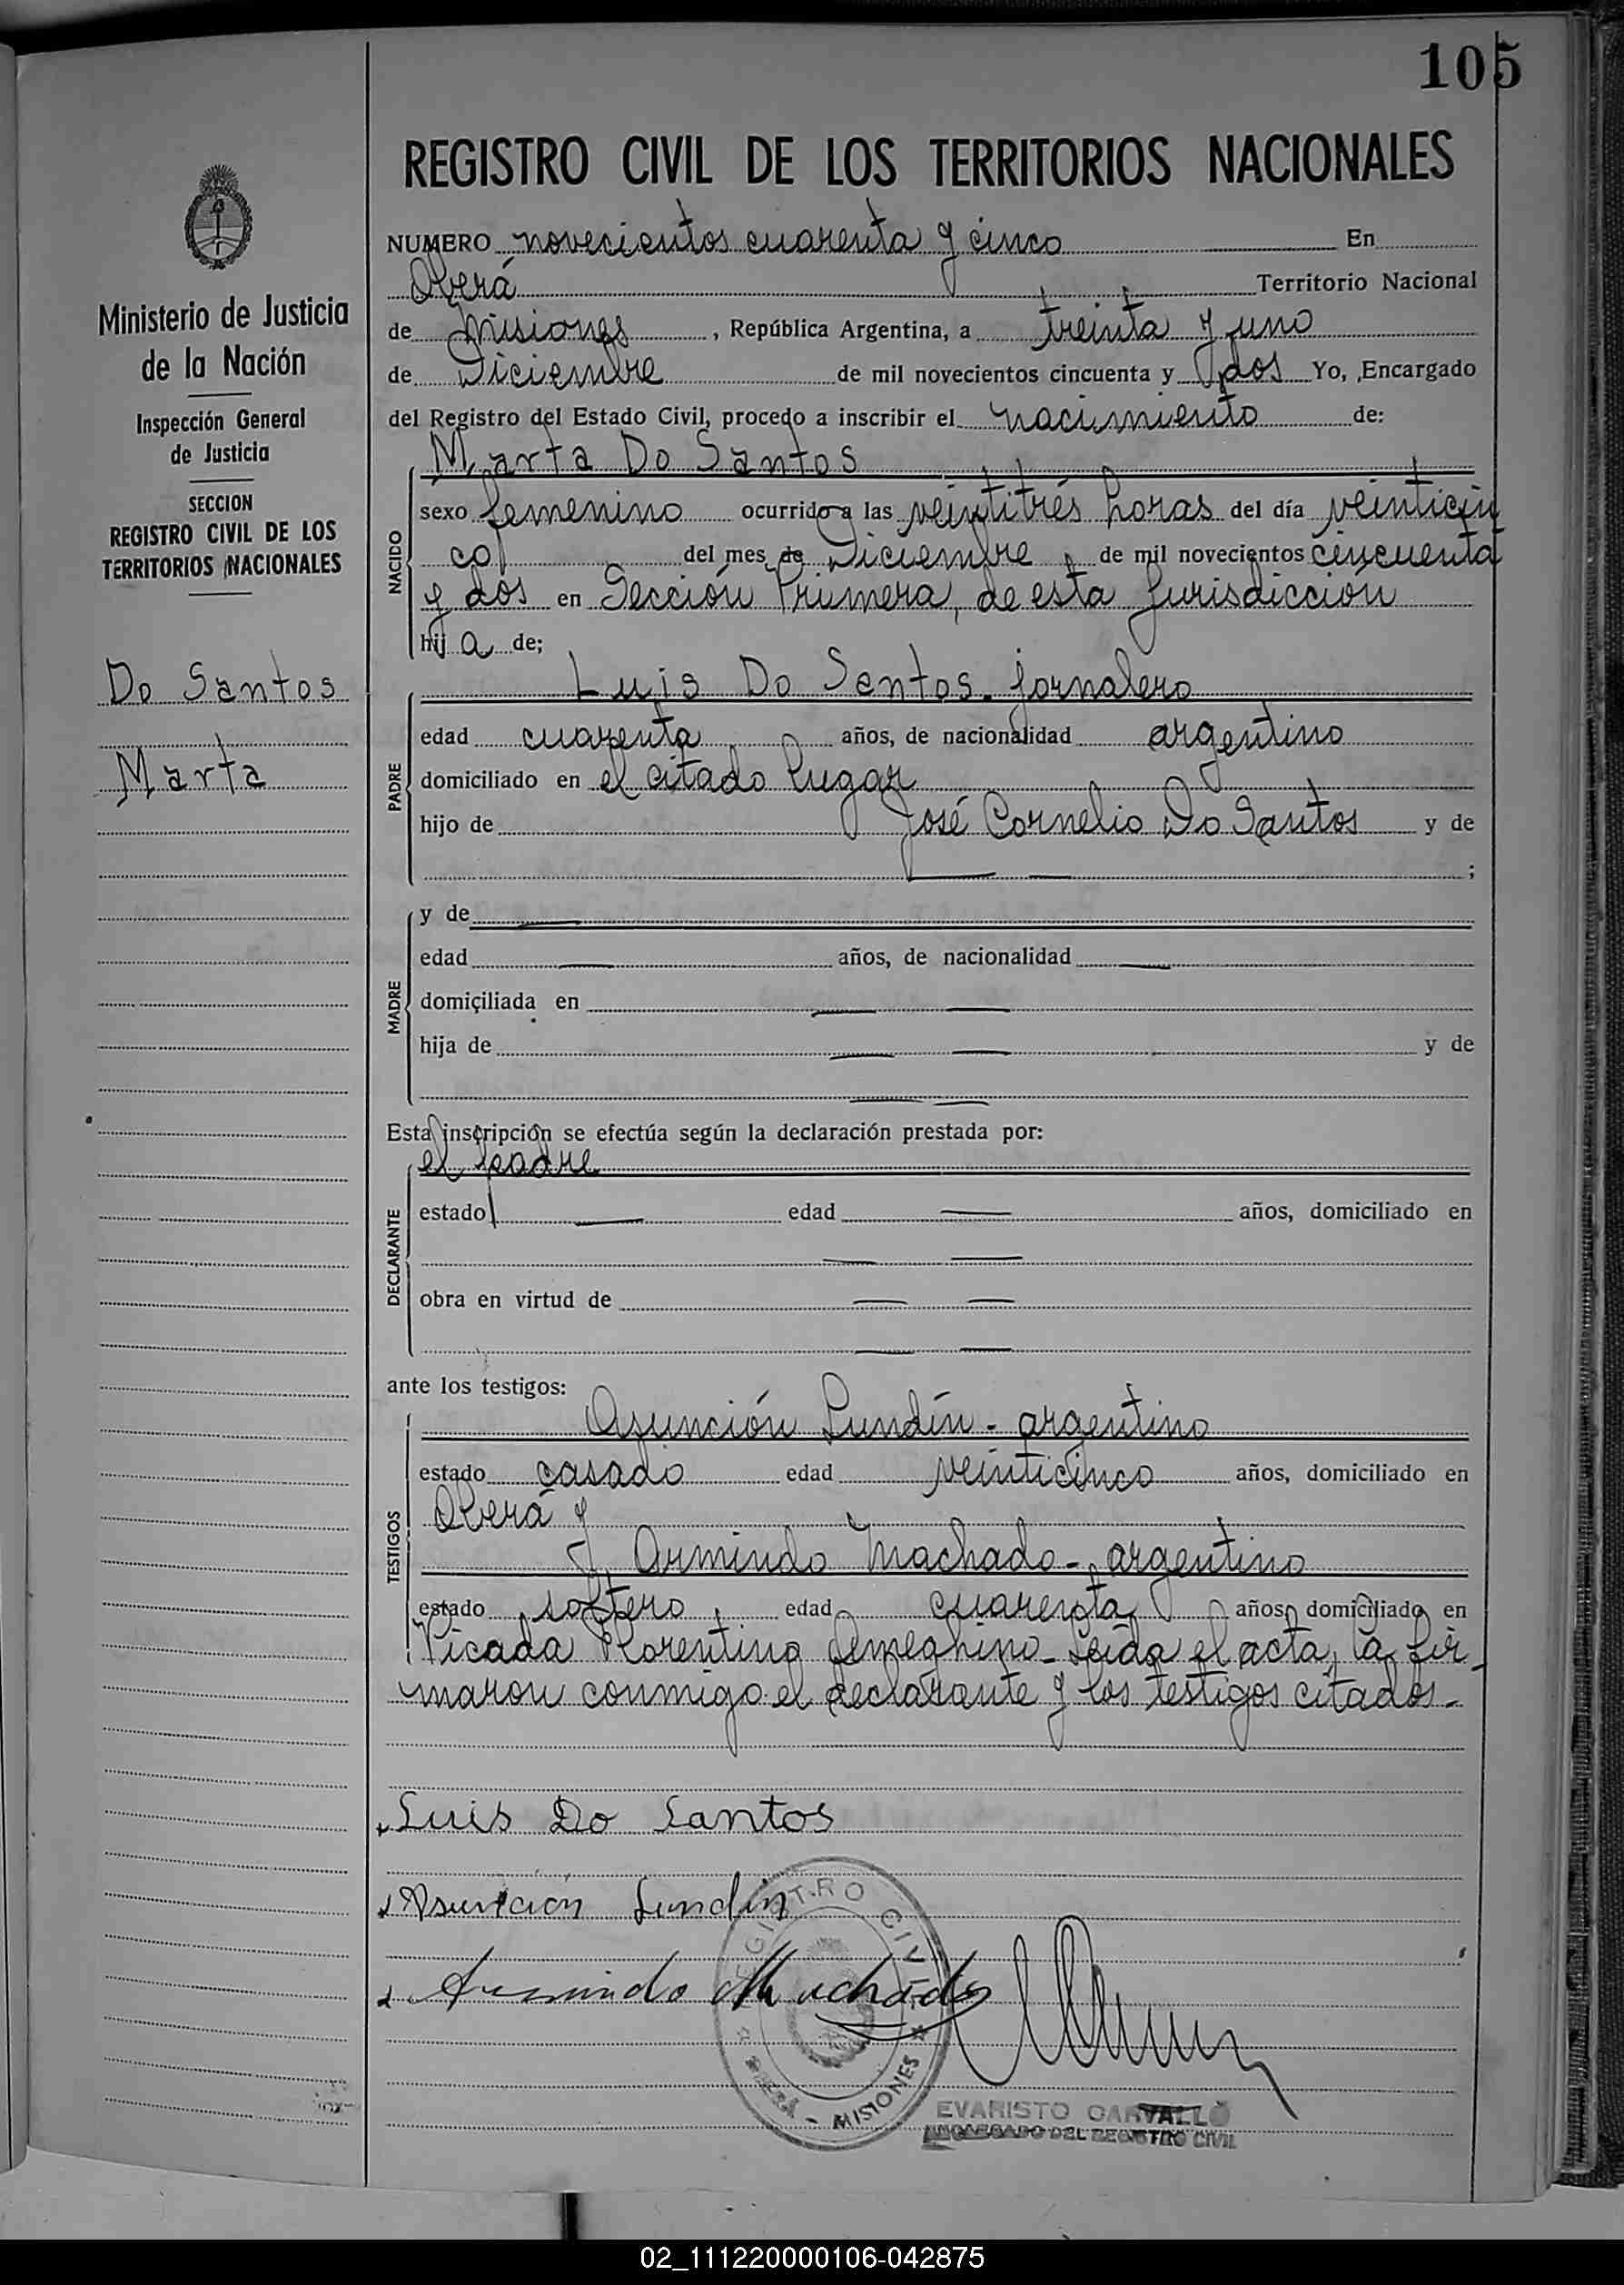 105
REGISTRO CIVIL DE LOS TERRITORIOS NACIONALES
Ministerio de Justicia
de la Nación
Inspección General
de Justicia
SECCION
REGISTRO CIVIL DE LOS
TERRITORIOS NACIONALES
Do Santos
Marta
NUMERO novecientos cuarenta y cinco En
Oberá Territorio Nacional
de Misiones, República Argentina, a treinta y uno
de Diciembre de mil novecientos cincuenta y dos Yo, Encargado
del Registro del Estado Civil, procedo a inscribir el nacimiento de:
Marta Do Santos
NACIDO
sexo femenino ocurrido a las veintitrés horas del día veinticin
co del mes de Diciembre de mil novecientos cincuenta
y dos en Sección Primera, de esta Jurisdicción
hij a de;
PADRE
Luis Do Santos. jornalero
edad cuarenta años, de nacionalidad argentino
domiciliado en el citado lugar
hijo de José Cornelio Do Santos y de
— — ;
MADRE
y de —
edad — años, de nacionalidad —
domiciliada en — —
hija de — — y de
— —
Esta inscripción se efectúa según la declaración prestada por:
el padre
DECLARANTE
estado — edad — años, domiciliado en
— —
obra en virtud de — —
— —
ante los testigos:
TESTIGOS
Asunción Lundín - argentino
estado casado edad veinticinco años, domiciliado en
Oberá y
Armindo Machado - argentino
estado soltero edad cuarenta años, domiciliado en
Picada Florentino Ameghino - Leida el acta, la fir
maron conmigo el declarante y los testigos citados.-
Luis Do Santos
Asunción Lundín
Armindo Machado
REGISTRO CIVIL
OBERÁ - MISIONES
EVARISTO CARVALLO
ENCARGADO DEL REGISTRO CIVIL
02_111220000106-042875